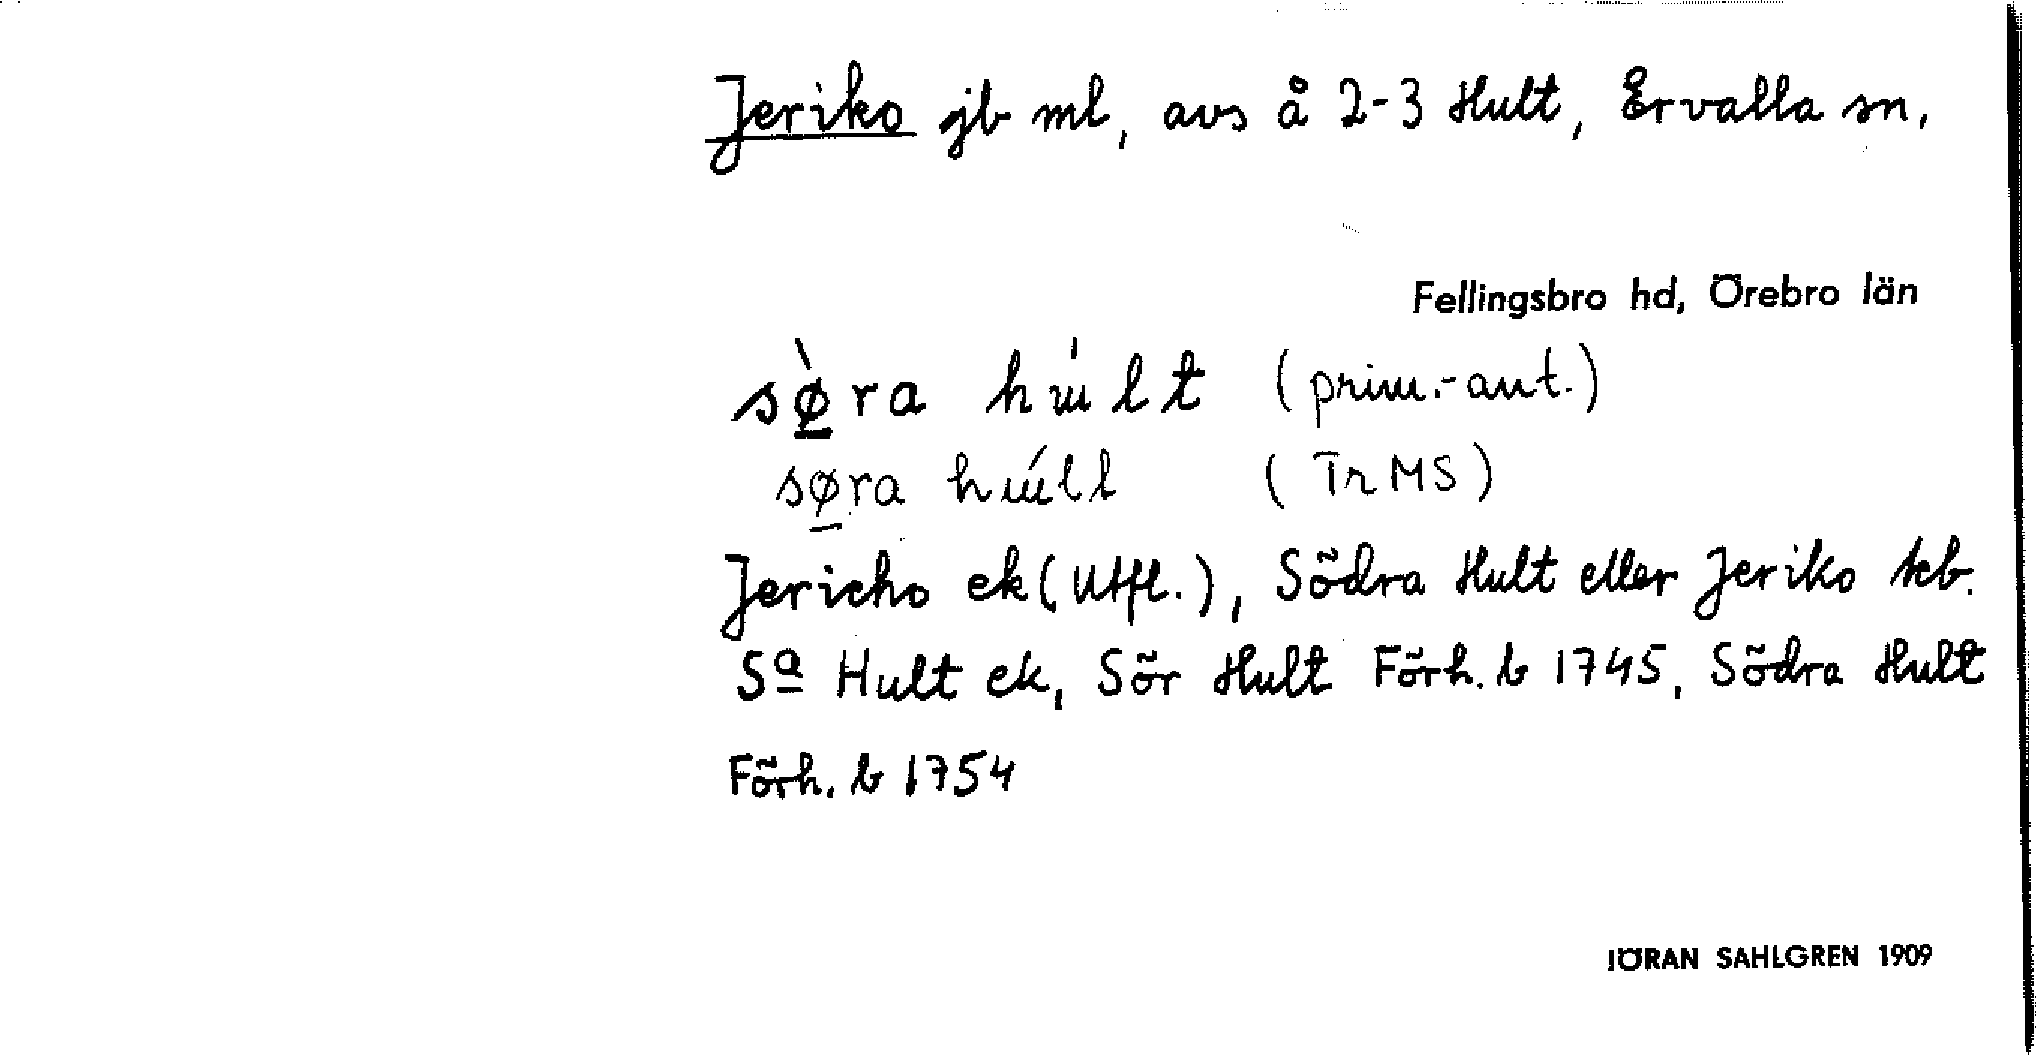 Jeriko jb ml, avs å 2-3 Hult, Ervalla sn,
Fellingsbro hd, Örebro län
sø̀ra hɯ́lt (prim.-ant.)
søra hɯ́ll (TrMS)
Jericho ek (Utfl.), Södra Hult eller Jeriko kb.
Sa Hult ek, Sör Hult Förh. b 1745, Södra Hult
Förh. b 1754
JÖRAN SAHLGREN 1909